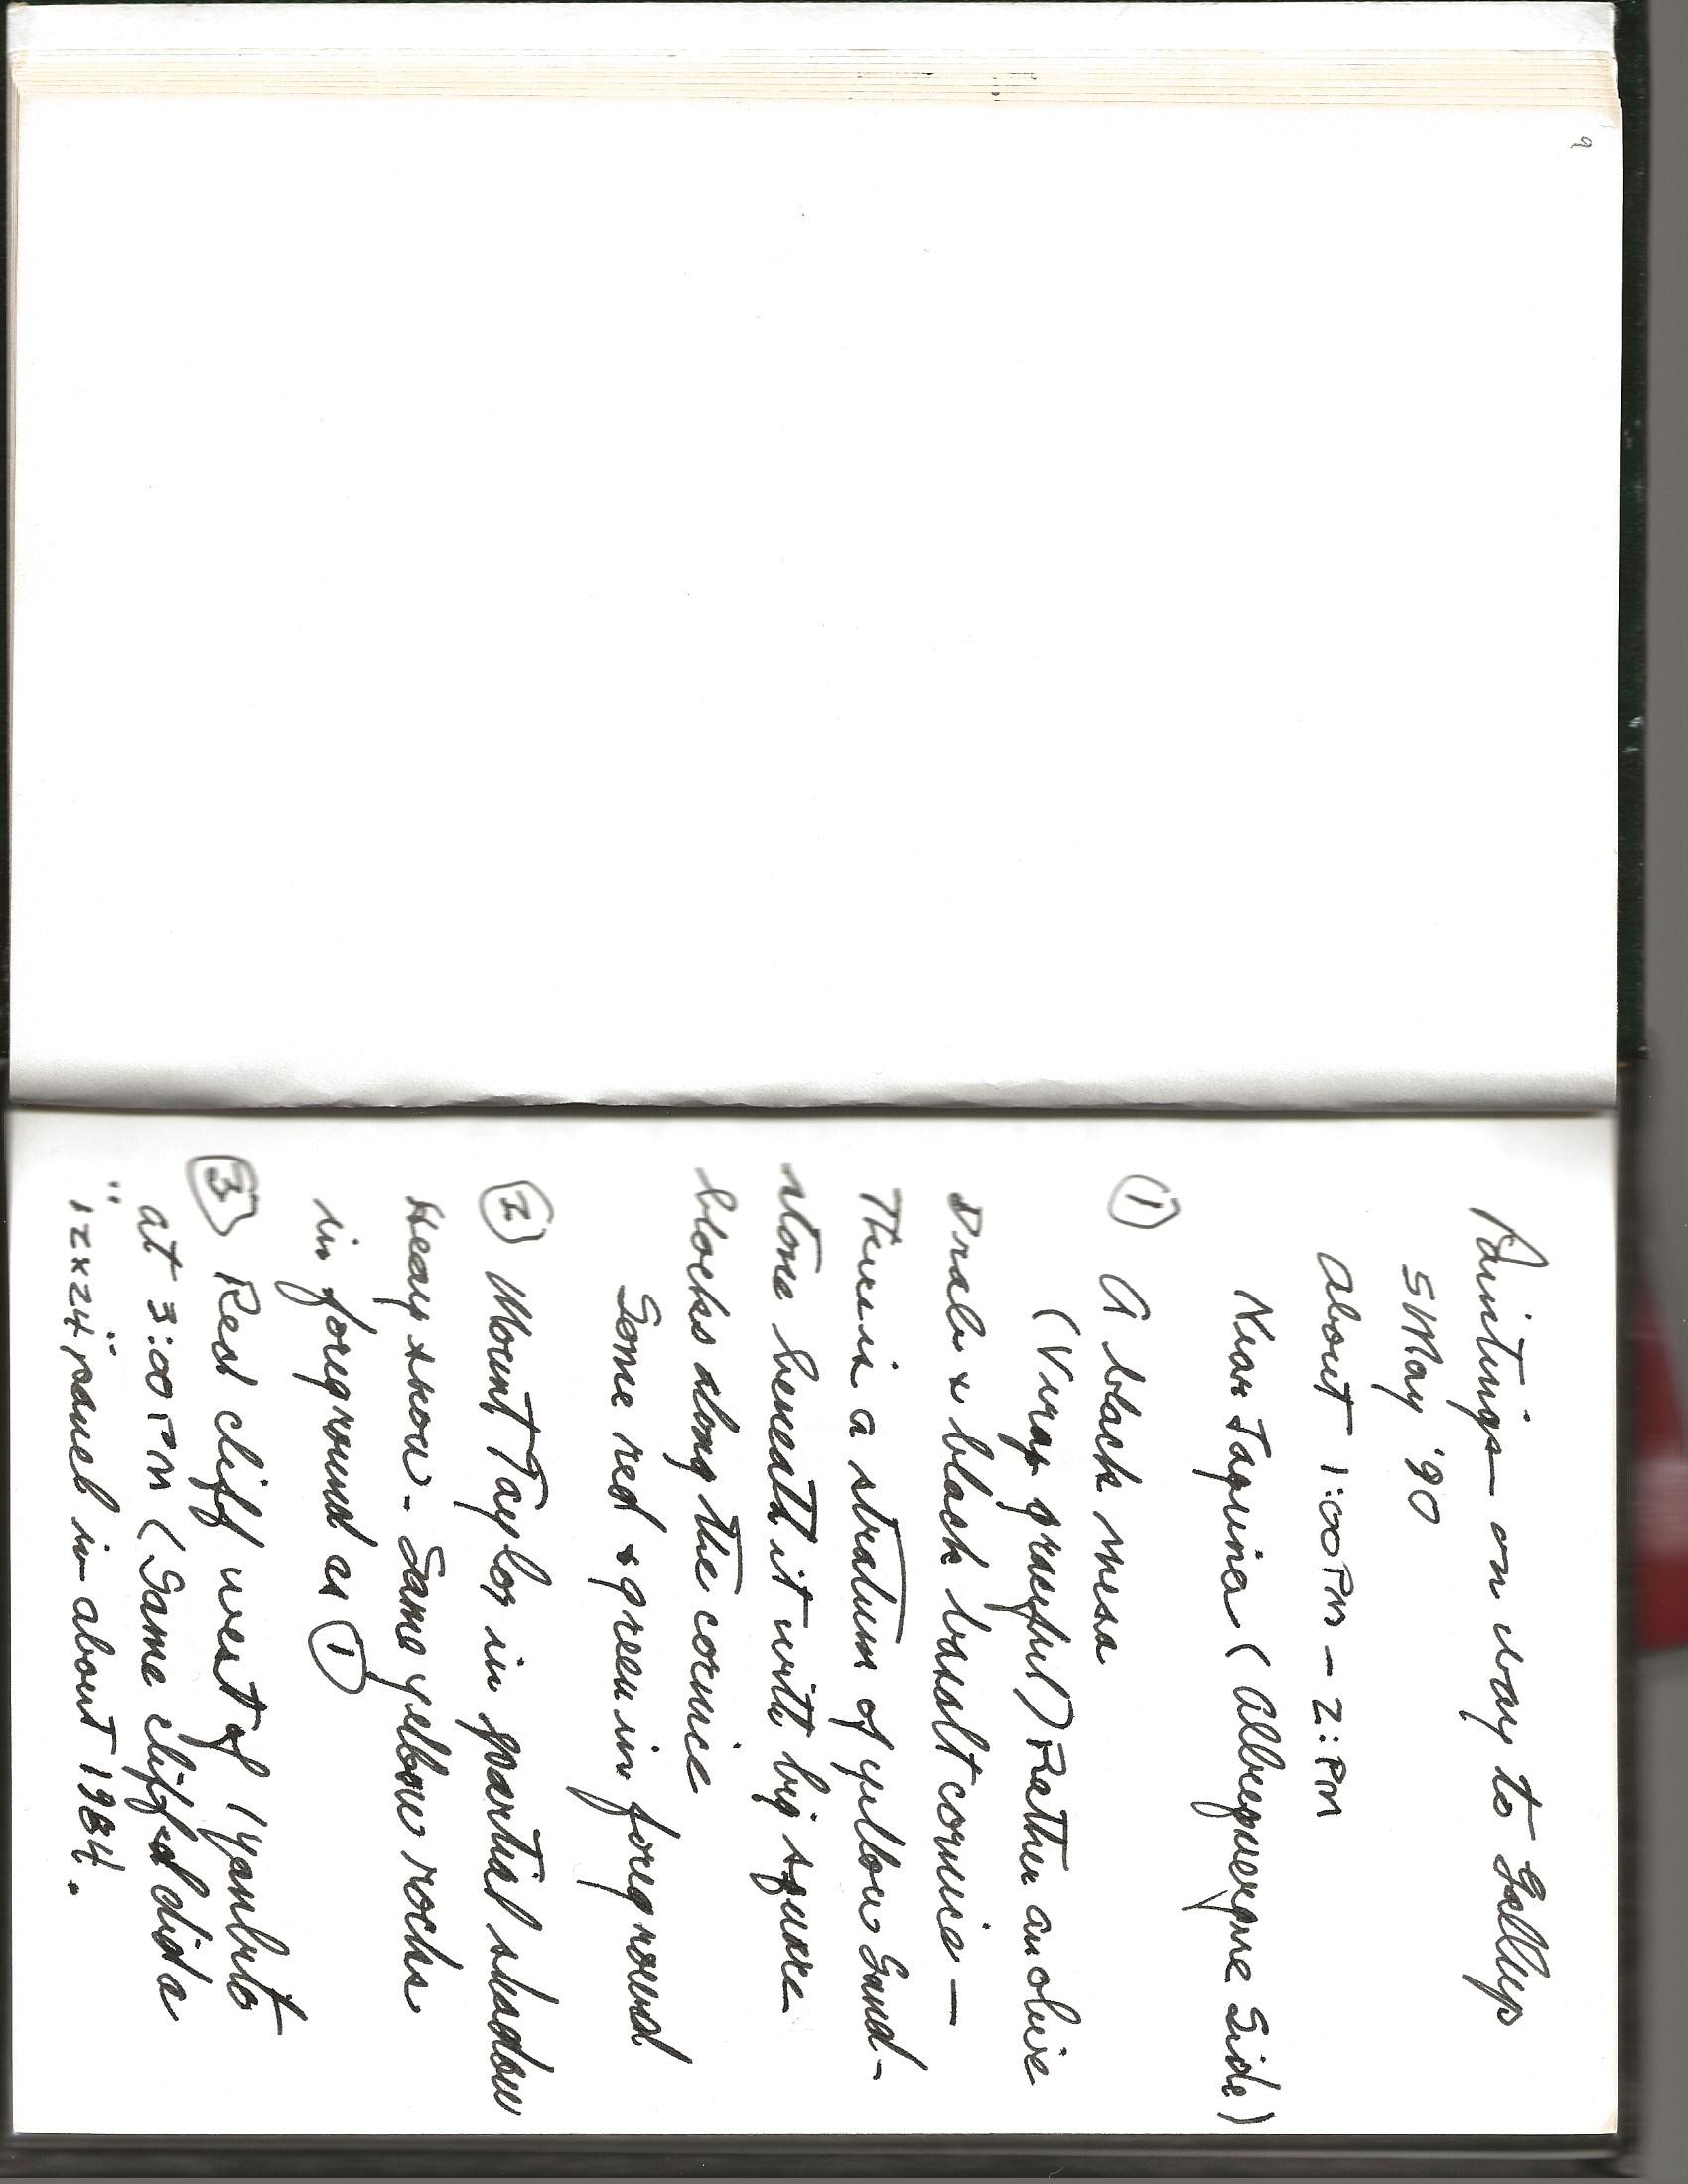 9
Paintings on way to Gallup
5 May '90
About 1:00 PM - 2:PM
Near Laguna (Albequerque Side)
① A black mesa
(Very graceful) Rather an olive
Drab & black basalt cornice —
There is a stratum of yellow Sand-
stone beneath it with big square
blocks along the cornice
Some red & green in foreground
② Mount Taylor in partial shadow
Heavy snow - Same yellow rocks
in foreground as ①
③ Red cliff west of
at 3:00 PM (Same cliff I did a
12x24 panel in about 1984.